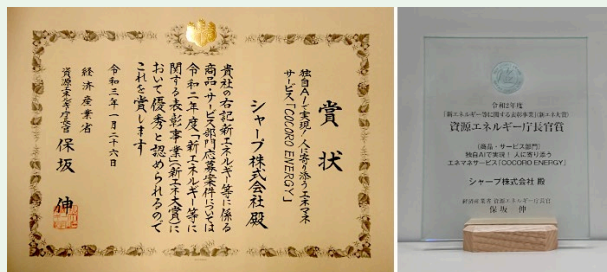 賞状
独自AIで実現!人に寄り添うエネマネ
サービス「COCORO ENERGY」
シャープ株式会社 殿
貴社の右記新エネルギー等に係る
商品・サービス部門応募案件については
令和二年度「新エネルギー等に
関する表彰事業(新エネ大賞)」に
おいて優秀と認められるので
これを賞します
令和三年一月二十六日
経済産業省
資源エネルギー庁長官 保坂 伸
令和2年度
「新エネルギー等に関する表彰事業」(新エネ大賞)
資源エネルギー庁長官賞
(商品・サービス部門)
独自AIで実現! 人に寄り添う
エネマネサービス「COCORO ENERGY」
シャープ株式会社 殿
経済産業省 資源エネルギー庁長官
保坂 伸